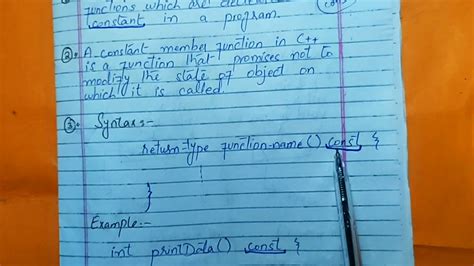 functions which are
constant in a program.
② A constant member function in C++
is a function that promises not to
modify the state of object on
which it is called
③ Syntax:-
return-type function-name() const {
}
Example:-
int printData() const {